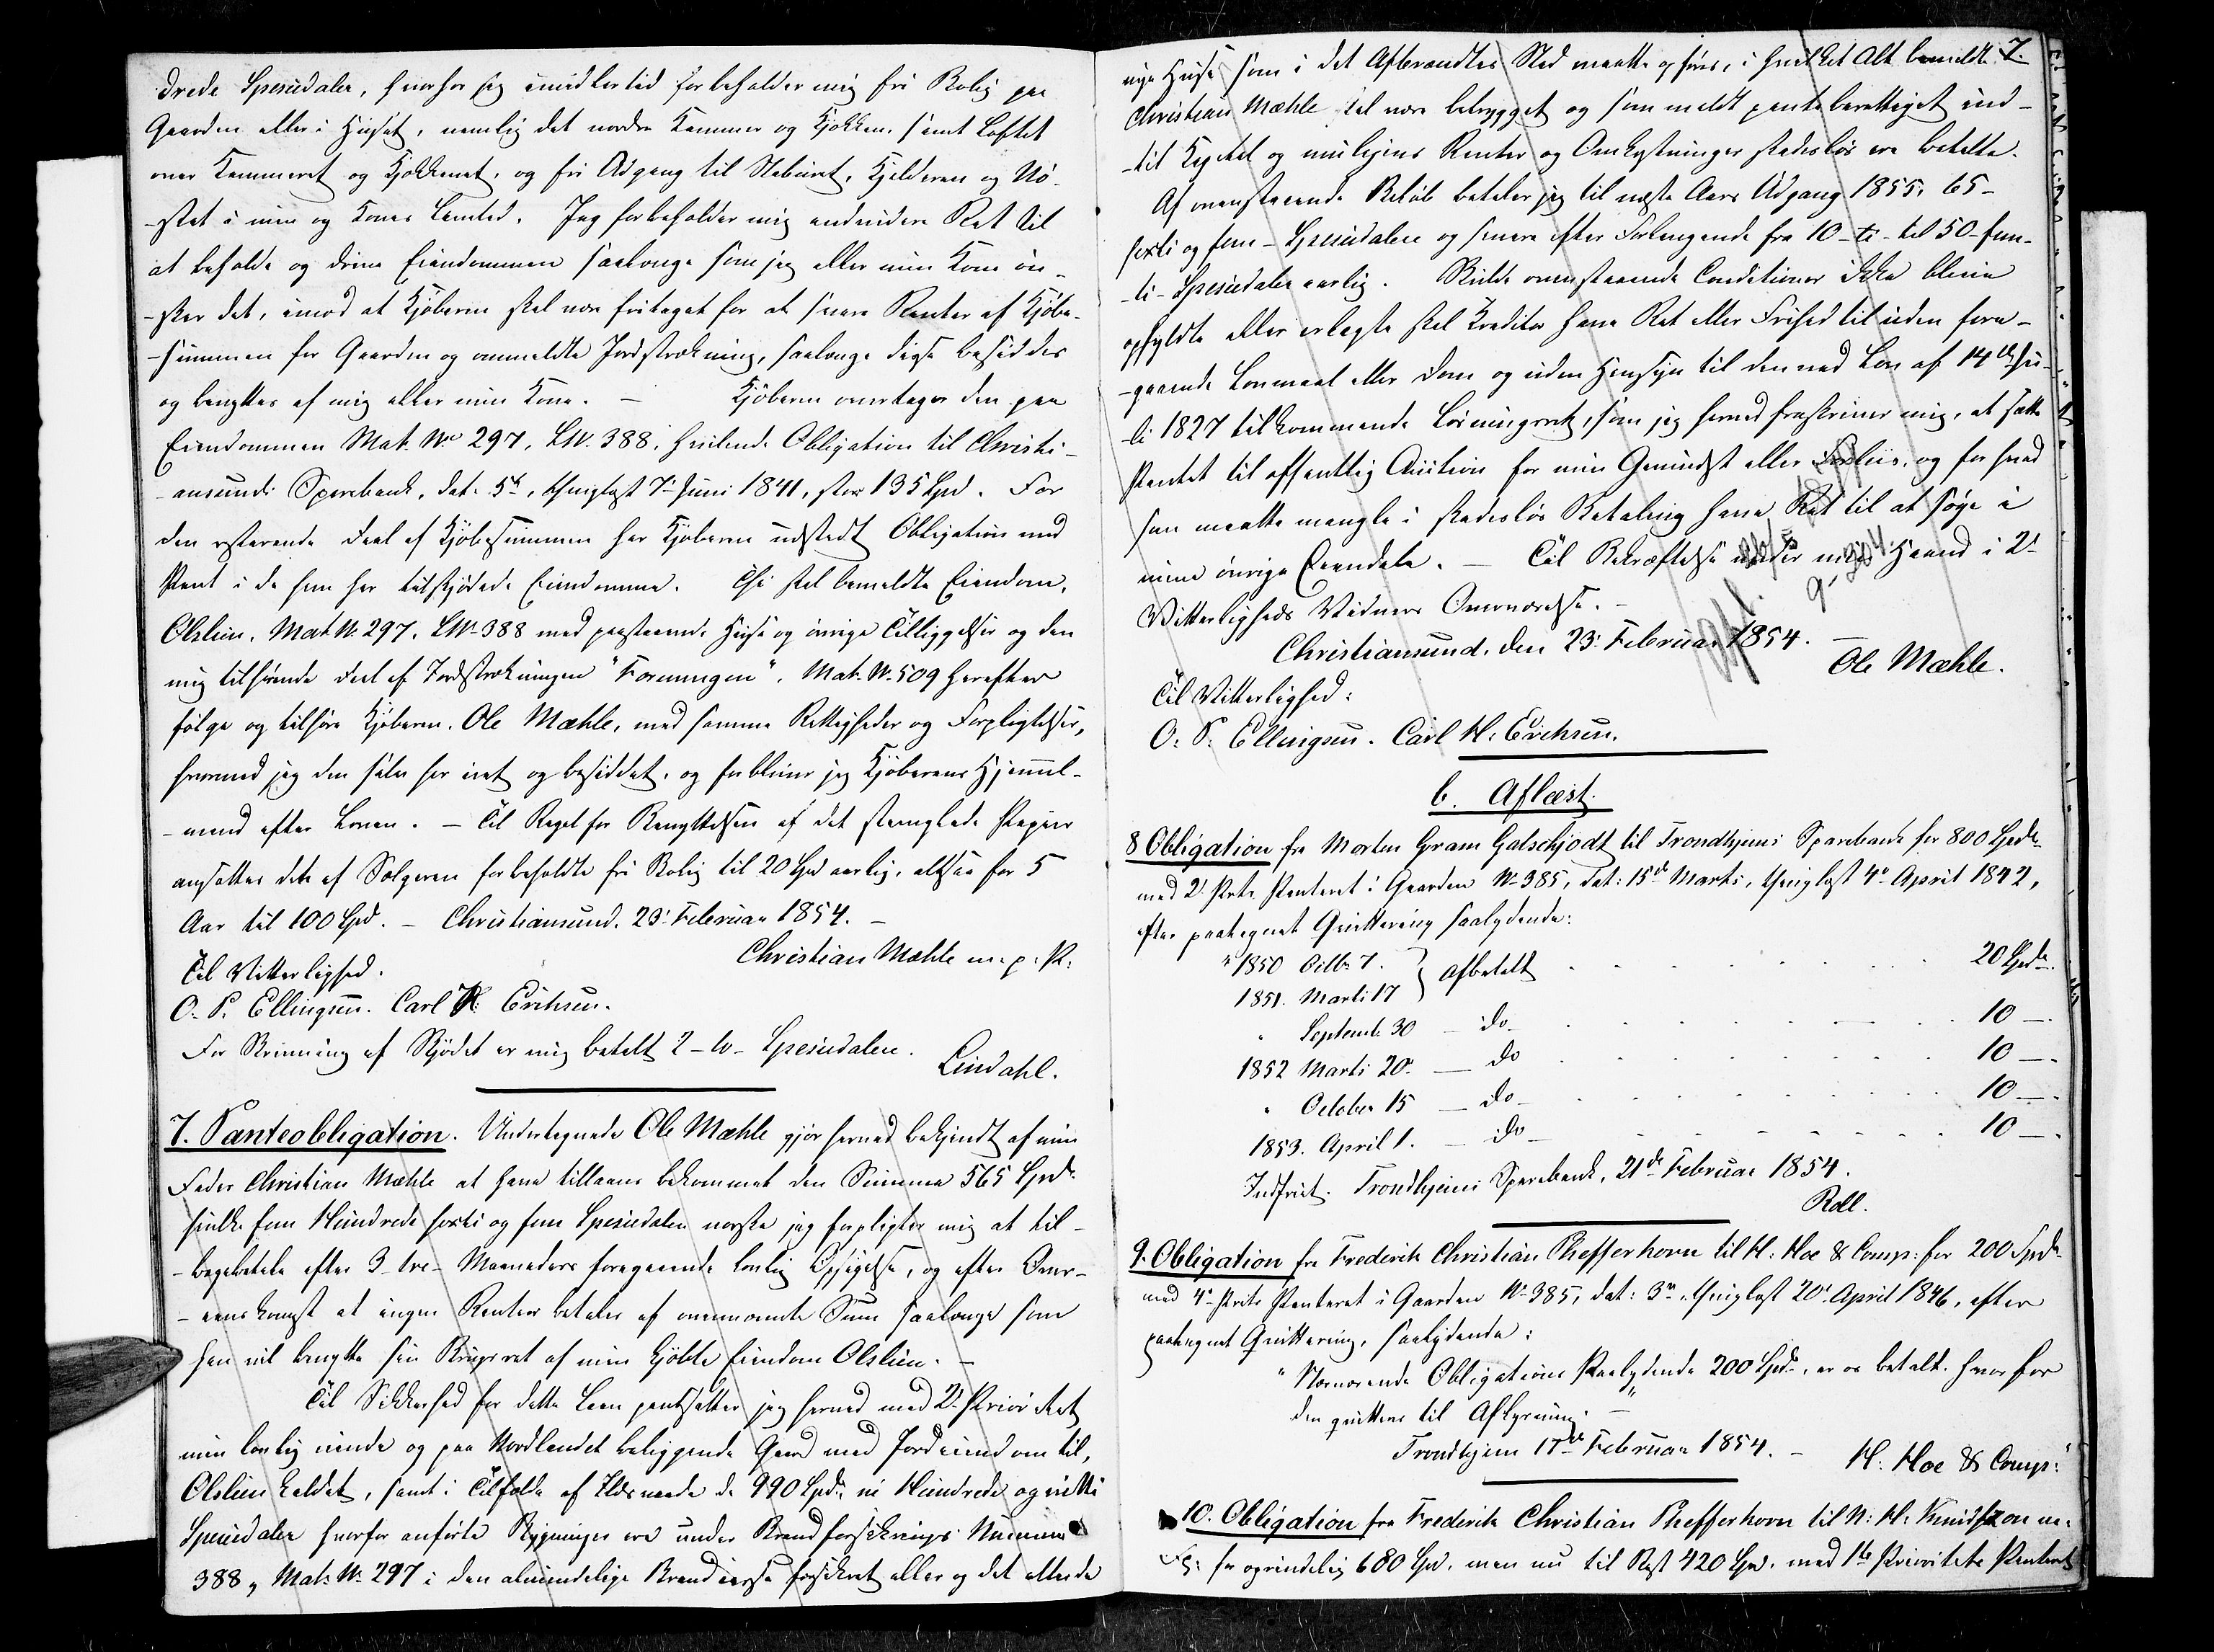 drede Speciedaler, hvorhos jeg imidlertid forbeholder mig fri Bolig paa
Gaarden eller i Huset, nemlig det nordre Kammer og Kjøkken, samt Loftet
over Kammeret og Kjøkkenet, og fri Adgang til Staburet, Kjelderen og Nö-
-stet i min og Kones Levetid. Jeg forbeholder mig endvidere Ret til
at beholde og drive Eiendommen saalænge som jeg eller min Kone ön-
-sker det, imod at Kjöberen skal være fritaget for at svare Renter af Kjöbe-
-summen for Gaarden og ommeldte Jordstrækning, saalænge disse besiddes
og benyttes af mig eller min Kone. — Kjöberen overtager den paa
Eiendommen Mat. No 297, LN. 388, hvilende Obligation til Christi-
-ansunds Sparebank, dat. 5te, thinglæst 7' Juni 1841, stor 135 Spd. For
den resterende Deel af Kjöbesummen har Kjöberen udstedt Obligation med
Pant i de ham her tilskjödede Eiendomme. Thi skal bemeldte Eiendom,
Olslien, Mat N. 297, LN. 388 med paastaaende Huse og övrige Tilliggelser og den
mig tilhörende Deel af Jordstrækningen "Formungen", Mat. N. 509 herefter
fölge og tilhöre Kjöberen, Ole Mæhle, med samme Rettigheder og Forpligtelser,
hvormed jeg den selv har eiet og besiddet, og forbliver jeg Kjöberens Hjemmel-
-mand efter Loven. — Til Regel for Benyttelsen af det stemplede Papiir
ansættes det af Sælgeren forbeholdte fri Bolig til 20 Spd aarlig, altsaa for 5
Aar til 100 Spd. — Christiansund, 23' Februar 1854. —
Christian Mæhle m. p. P.
Til Vitterlighed.
O. P. Ellingsen. Carl H. Erichsen.
For Skrivning af Skjödet er mig betalt 2 - to - Speciedaler.
Lindahl.
7. Panteobligation. Undertegnede Ole Mæhle gjör herved bekjendt af min
Fader Christian Mæhle at have tillaans bekommet den Summa 565 Spdr
hvilke fem Hundrede sexti og fem Speciedaler norske jeg forpligter mig at til-
-bagebetale efter 3 - tre - Maaneders foregaaende lovlig Opsigelse, og efter Over-
-eenskomst at ingen Renter betales af ovennævnte Sum saalænge som
han vil benytte sin Brugsret af min kjöbte Eiendom Olslien. —
Til Sikkerhed for dette Laan pantsætter jeg herved med 2' Prioritet
min lovlig eiende og paa Nordlandet beliggende Gaard med Jordeiendom til,
Olslien kaldet, samt i Tilfælde af Ildsvaade de 990 Spdr ni Hundrede og nitti
Speciedaler hvorfor anförte Bygninger ere under Brandforsikrings Nummer
388, Mat. N. 297 i den almindelige Brandcasse forsikret eller og det eller de
7.
nye Huse som i det Afbrændtes Sted maatte opföres, i hvilket Alt bemeldte
Christian Mæhle skal være betrygget og som meldt panteberettiget ind-
-til Kapital og muligens Renter og Omkostninger skadeslös ere betalte.
Af ovenstaaende Belöb betaler jeg til næste Aars Udgang 1855, 65 -
sexti og fem - Speciedalere og senere efter Forlangende fra 10 - ti - til 50 - fem-
-ti - Speciedaler aarlig. Skulde ovenstaaende Conditioner ikke blive
opfyldte eller erlagte skal Kreditor have Ret eller Frihed til uden fore-
-gaaende Lovmaal eller Dom og uden Hensyn til den ved Lov af 14de Ju-
-li 1827 tilkommende Lösningsret, som jeg herved fraskriver mig, at sætte
Pantet til offentlig Auction for min Gevindst eller Forliis, og for hvad
han maatte mangle i skadeslös Betaling have Ret til at söge i
mine övrige Eiendele. — Til Bekræftelse under min Haand i 2'
Vitterligheds Vidners Overværelse. —
Christiansund, den 23' Februar 1854. —
Ole Mæhle.
Til Vitterlighed:
O: P: Ellingsen. Carl H: Erichsen.
b. Aflæst.
8 Obligation fra Morten Gram Galschjödt til Trondhjems Sparebank for 800 Spdr
med 2' Prts Panteret i Gaarden N. 385, dat: 15de Marts, thinglæst 4' April 1842,
efter paategnet Qvittering saalydende:
" 1850 Octbr 7. } afbetalt 20 Spdr
1851. Marts 17
" Septemb. 30 — do — 10 —
1852 Marts 20. — do 10 —
" October 15 — do — 10 —
1853. April 1. — do — 10 —
Indfriet. Trondhjems Sparebank, 21de Februar 1854.
Roll.
9. Obligation fra Frederik Christian Phefferhorn til H: Hoe & Comp: for 200 Spdr
med 4' Prits Panteret i Gaarden N. 385, dat: 3', thinglæst 20' April 1846, efter
paategnet Qvittering, saalydende:
" Nærværende Obligations Paalydende 200 Spdr, er os betalt, hvorfor
den qvitteres til Aflysning. —
Trondhjem 17de Februar 1854. —
H: Hoe & Comp:"
10. Obligation fra Frederik Christian Phefferhorn til N: H: Knudtzon m.
Fl: for oprindelig 680 Spd, men nu til Rest 420 Spd. med 1ste Prioritets Panteret